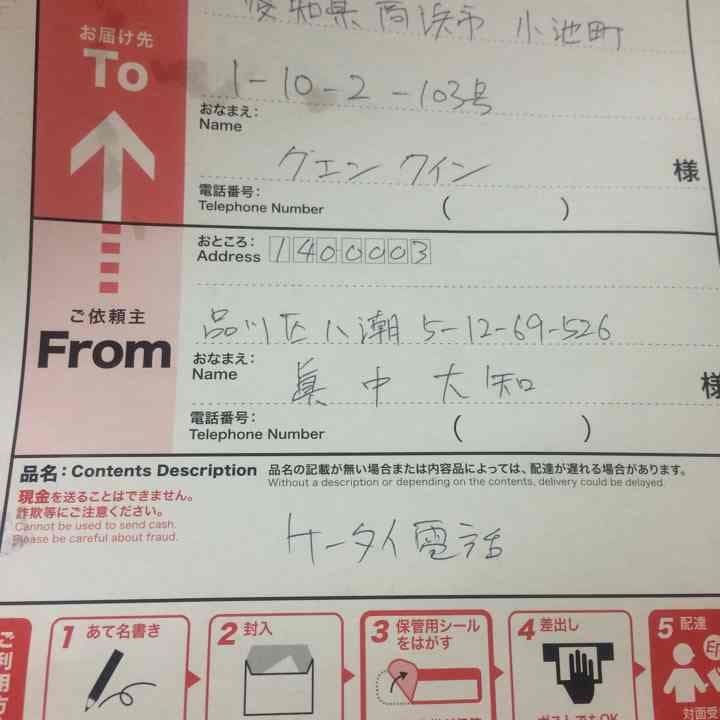 愛知県高浜市 小池町
お届け先
To
1-10-2-103号
おなまえ：
Name
グエン クイン
様
電話番号：
Telephone Number ( )
おところ：
Address 1400003
ご依頼主
From
品川区八潮 5-12-69-526
おなまえ：
Name
眞中 大知
様
電話番号：
Telephone Number ( )
品名：Contents Description 品名の記載が無い場合または内容品によっては、配達が遅れる場合があります。
Without a description or depending on the contents, delivery could be delayed.
現金を送ることはできません。
詐欺等にご注意ください。
Cannot be used to send cash.
Please be careful about fraud.
ケータイ電話
ご利用方
1 あて名書き
2 封入
3 保管用シール
をはがす
4 差出し
ポストでもOK
5 配達
印
対面受